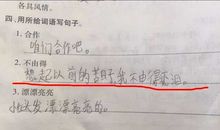 各具风情。
四、用所给词语写句子。
1. 合作
咱们合作吧。
2. 不由得
想起以前的苦日子,我不由得落泪。
3. 漂漂亮亮
把头发漂漂亮亮的。